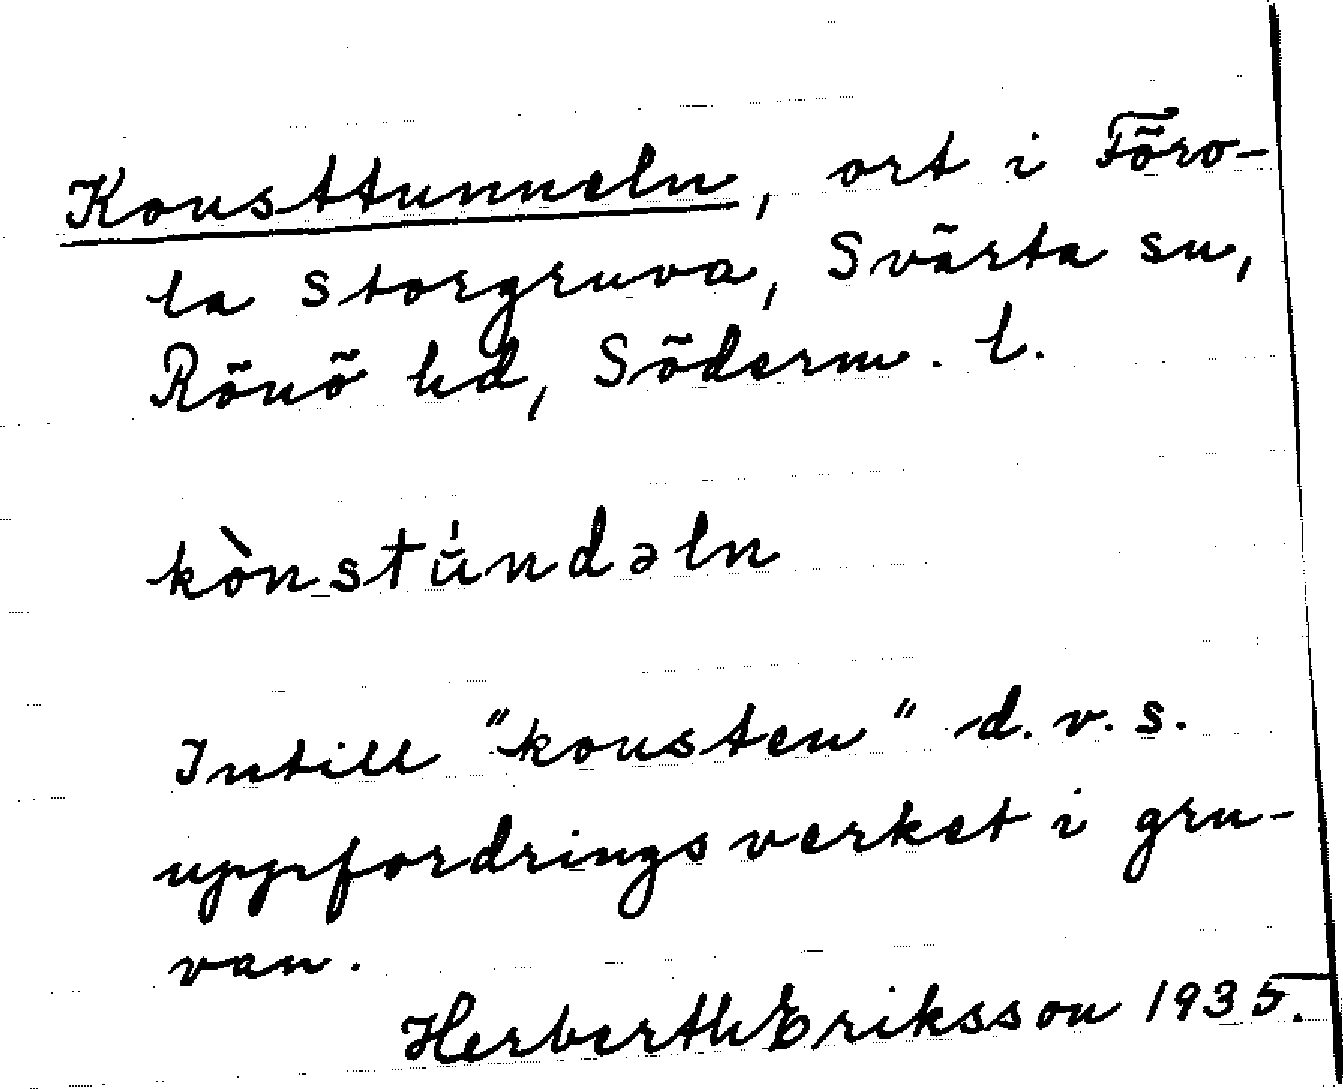 Konsttunneln, ort i Föro-
la Storgruva, Svärta sn,
Rönö hd, Söderm. l.
kònstu̍ndəln
Intill "konsten" d.v.s.
uppfordringsverket i gru-
van.
Herberth Eriksson 1935.